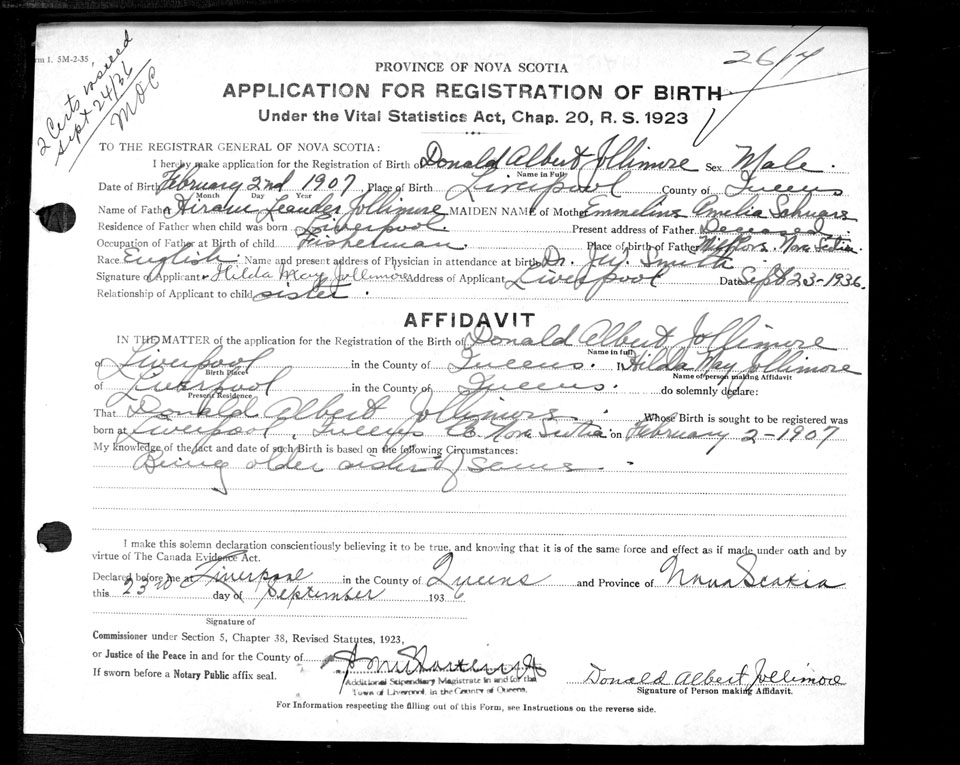 rm 1. 5M-2-35,
2 Certs issued
Sept 24/36
MOC
26/7
PROVINCE OF NOVA SCOTIA
APPLICATION FOR REGISTRATION OF BIRTH
Under the Vital Statistics Act, Chap. 20, R. S. 1923
TO THE REGISTRAR GENERAL OF NOVA SCOTIA:
I hereby make application for the Registration of Birth of Donald Albert Jollimore Sex Male
Name in Full
Date of Birth February 2nd 1907 Place of Birth Liverpool County of Queens
Month Day Year
Name of Father Hiram Leander Jollimore MAIDEN NAME of Mother Emmeline Amelia
Residence of Father when child was born Liverpool. Present address of Father Deceased
Occupation of Father at Birth of child Fisherman. Place of birth of Father Nova Scotia
Race English. Name and present address of Physician in attendance at birth Dr. J.W. Smith
Signature of Applicant Hilda May Jollimore Address of Applicant Liverpool Date Sept 23-1936.
Relationship of Applicant to child sister.
AFFIDAVIT
IN THE MATTER of the application for the Registration of the Birth of Donald Albert Jollimore
Name in full
of Liverpool in the County of Queens. I, Hilda May Jollimore
Birth Place Name of person making Affidavit
of Liverpool in the County of Queens. do solemnly declare:
Present Residence
That Donald Albert Jollimore Whose Birth is sought to be registered was
born at Liverpool, Queens Co. Nova Scotia on February 2-1907
My knowledge of the fact and date of such Birth is based on the following Circumstances:
Being older sister of same.
I make this solemn declaration conscientiously believing it to be true, and knowing that it is of the same force and effect as if made under oath and by
virtue of The Canada Evidence Act.
Declared before me at Liverpool in the County of Queens and Province of Nova Scotia
this 23rd day of September 1936
Signature of
Commissioner under Section 5, Chapter 38, Revised Statutes, 1923,
or Justice of the Peace in and for the County of
If sworn before a Notary Public affix seal.
Additional Stipendiary Magistrate in and for the
Town of Liverpool, in the County of Queens.
Donald Albert Jollimore
Signature of Person making Affidavit.
For Information respecting the filling out of this Form, see Instructions on the reverse side.